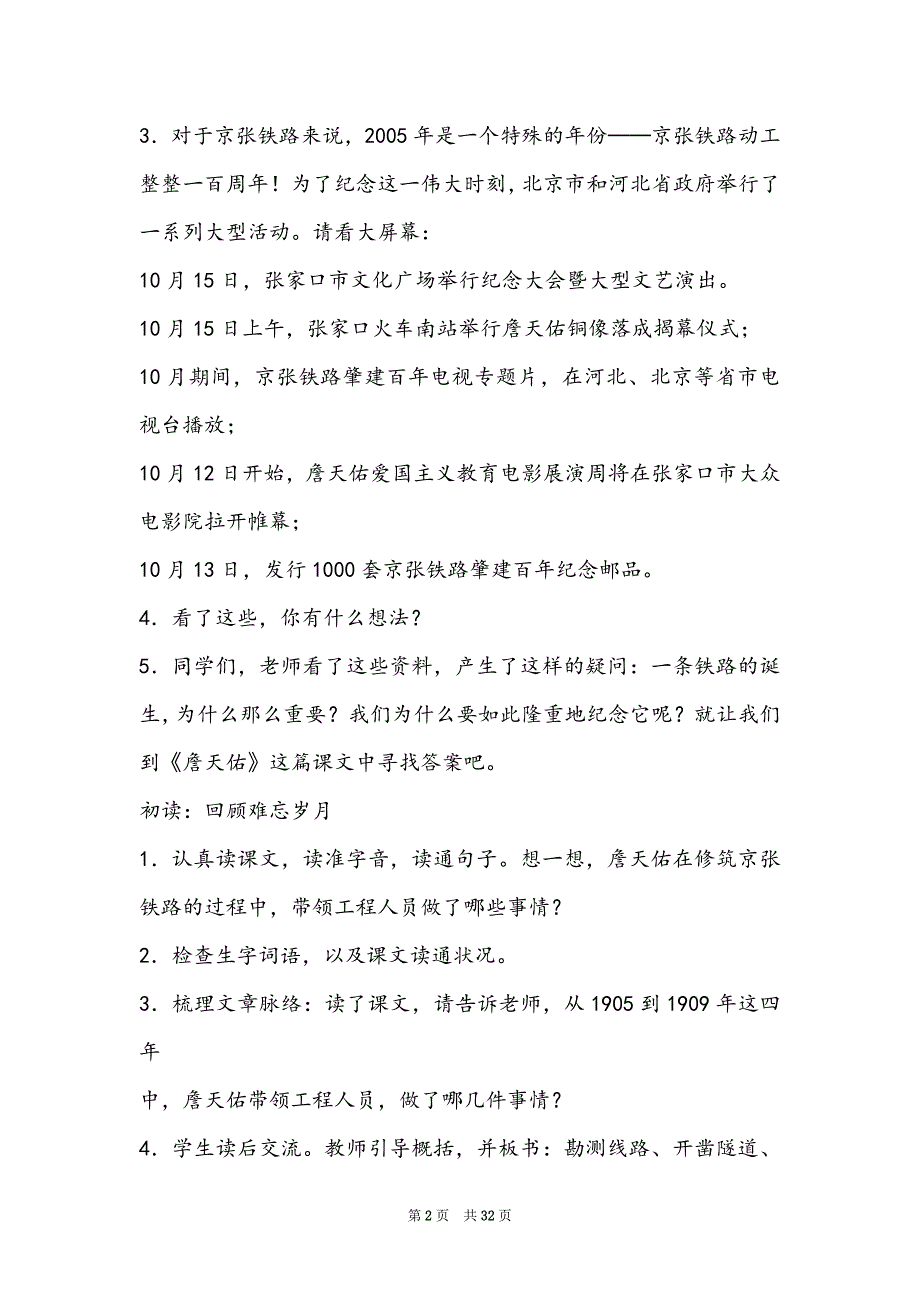 3．对于京张铁路来说，2005 年是一个特殊的年份——京张铁路动工
整整一百周年！为了纪念这一伟大时刻，北京市和河北省政府举行了
一系列大型活动。请看大屏幕：
10 月 15 日，张家口市文化广场举行纪念大会暨大型文艺演出。
10 月 15 日上午，张家口火车南站举行詹天佑铜像落成揭幕仪式；
10 月期间，京张铁路肇建百年电视专题片，在河北、北京等省市电
视台播放；
10 月 12 日开始，詹天佑爱国主义教育电影展演周将在张家口市大众
电影院拉开帷幕；
10 月 13 日，发行 1000 套京张铁路肇建百年纪念邮品。
4．看了这些，你有什么想法？
5．同学们，老师看了这些资料，产生了这样的疑问：一条铁路的诞
生，为什么那么重要？我们为什么要如此隆重地纪念它呢？就让我们
到《詹天佑》这篇课文中寻找答案吧。
初读：回顾难忘岁月
1．认真读课文，读准字音，读通句子。想一想，詹天佑在修筑京张
铁路的过程中，带领工程人员做了哪些事情？
2．检查生字词语，以及课文读通状况。
3．梳理文章脉络：读了课文，请告诉老师，从 1905 到 1909 年这四
年
中，詹天佑带领工程人员，做了哪几件事情？
4．学生读后交流。教师引导概括，并板书：勘测线路、开凿隧道、
第 2 页 共 32 页